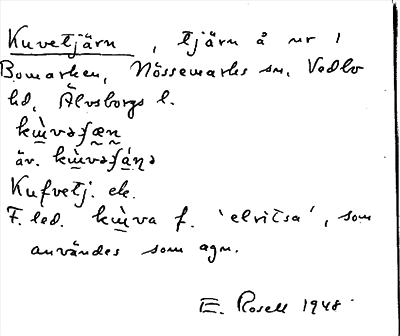 Kuvetjärn, tjärn å nr 1
Bomarken, Nössemarks sn, Vedbo
hd, Älvsborgs l.
kɯ̀vəʃæn
äv. kɯ̀vəʃáṇə
Kufvetj. ek.
F. led. kɯ̀va f. 'elritsa', som
användes som agn.
E. Rosell 1948